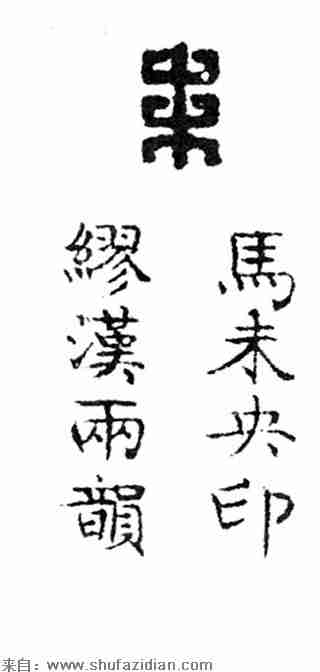 未
馬未央印
繆漢兩韻
来自：www.shufazidian.com